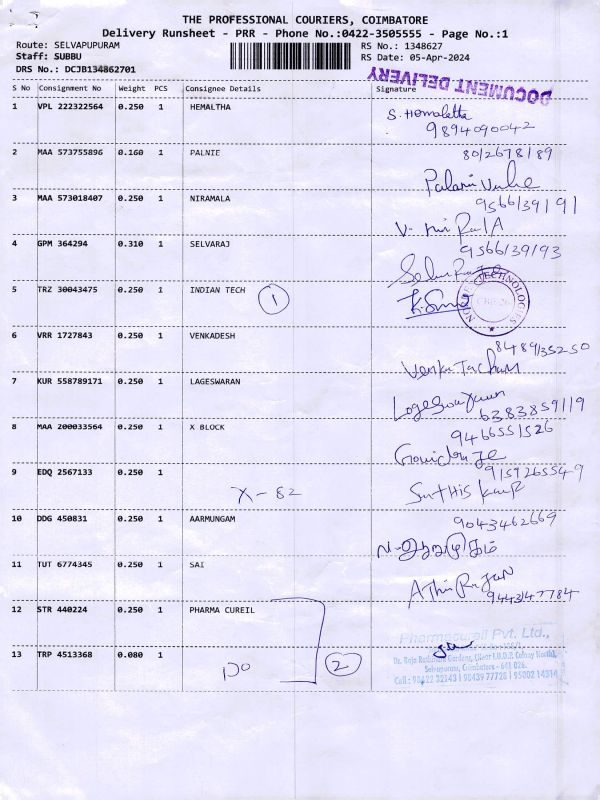 THE PROFESSIONAL COURIERS, COIMBATORE
Delivery Runsheet - PRR - Phone No.:0422-3505555 - Page No.:1
Route: SELVAPUPURAM
RS No.: 1348627
Staff: SUBBU
RS Date: 05-Apr-2024
DRS No.: DCJB134862701
DOCUMENT DELIVERY
S No Consignment No Weight PCS Consignee Details Signature
1 VPL 222322564 0.250 1 HEMALTHA
S. Hemaletta
9894090042
2 MAA 573755896 0.160 1 PALNIE
8012678189
3 MAA 573018407 0.250 1 NIRAMALA
9566139191
4 GPM 364294 0.310 1 SELVARAJ
9566139193
5 TRZ 30043475 0.250 1 INDIAN TECH
1
TECHNOLOGIES
6 VRR 1727843 0.250 1 VENKADESH
8489135250
7 KUR 558789171 0.250 1 LAGESWARAN
6383859119
8 MAA 200033564 0.250 1 X BLOCK
9466551526
9 EDQ 2567133 0.250 1
X-82
9159265549
10 DDG 450831 0.250 1 AARMUNGAM
9043462669
11 TUT 6774345 0.250 1 SAI
9443147784
12 STR 440224 0.250 1 PHARMA CUREIL
Pharmacureil Pvt. Ltd.,
13 TRP 4513368 0.080 1
DO
2
Selvapuram, Coimbatore - 641 026.